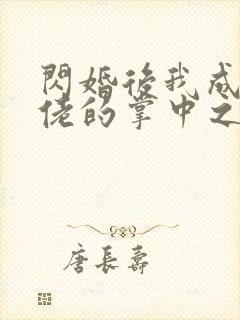 閃婚後我成
佬的掌中之
唐長壽